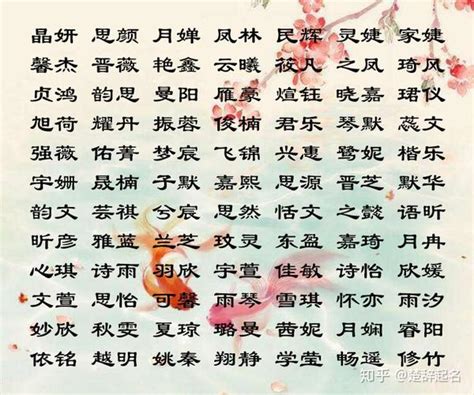 晶妍 思颜 月婵 凤林 民辉 灵婕 家婕
馨杰 晋薇 艳鑫 云曦 筱凡 之凤 琦风
贞鸿 韵思 曼阳 雁豪 煊钰 晓嘉 珺仪
旭荷 耀丹 振蓉 俊楠 君乐 琴默 蕊文
强薇 佑菁 梦宸 飞锦 兴惠 鹭妮 楷乐
宇姗 晟楠 子默 嘉熙 思源 晋芝 默华
韵文 芸祺 兮宸 思然 恬文 之懿 语昕
昕彦 雅蓝 兰芝 玟灵 东盈 嘉琦 月冉
心琪 诗雨 羽欣 宇萱 佳敏 诗怡 欣媛
文萱 思怡 可馨 雨琴 雪琪 怀亦 雨汐
妙欣 秋雯 夏琼 璐曼 茜妮 月娴 睿阳
依铭 越明 姚秦 翔静 学莹 畅遥 修竹
知乎 @楚辞起名